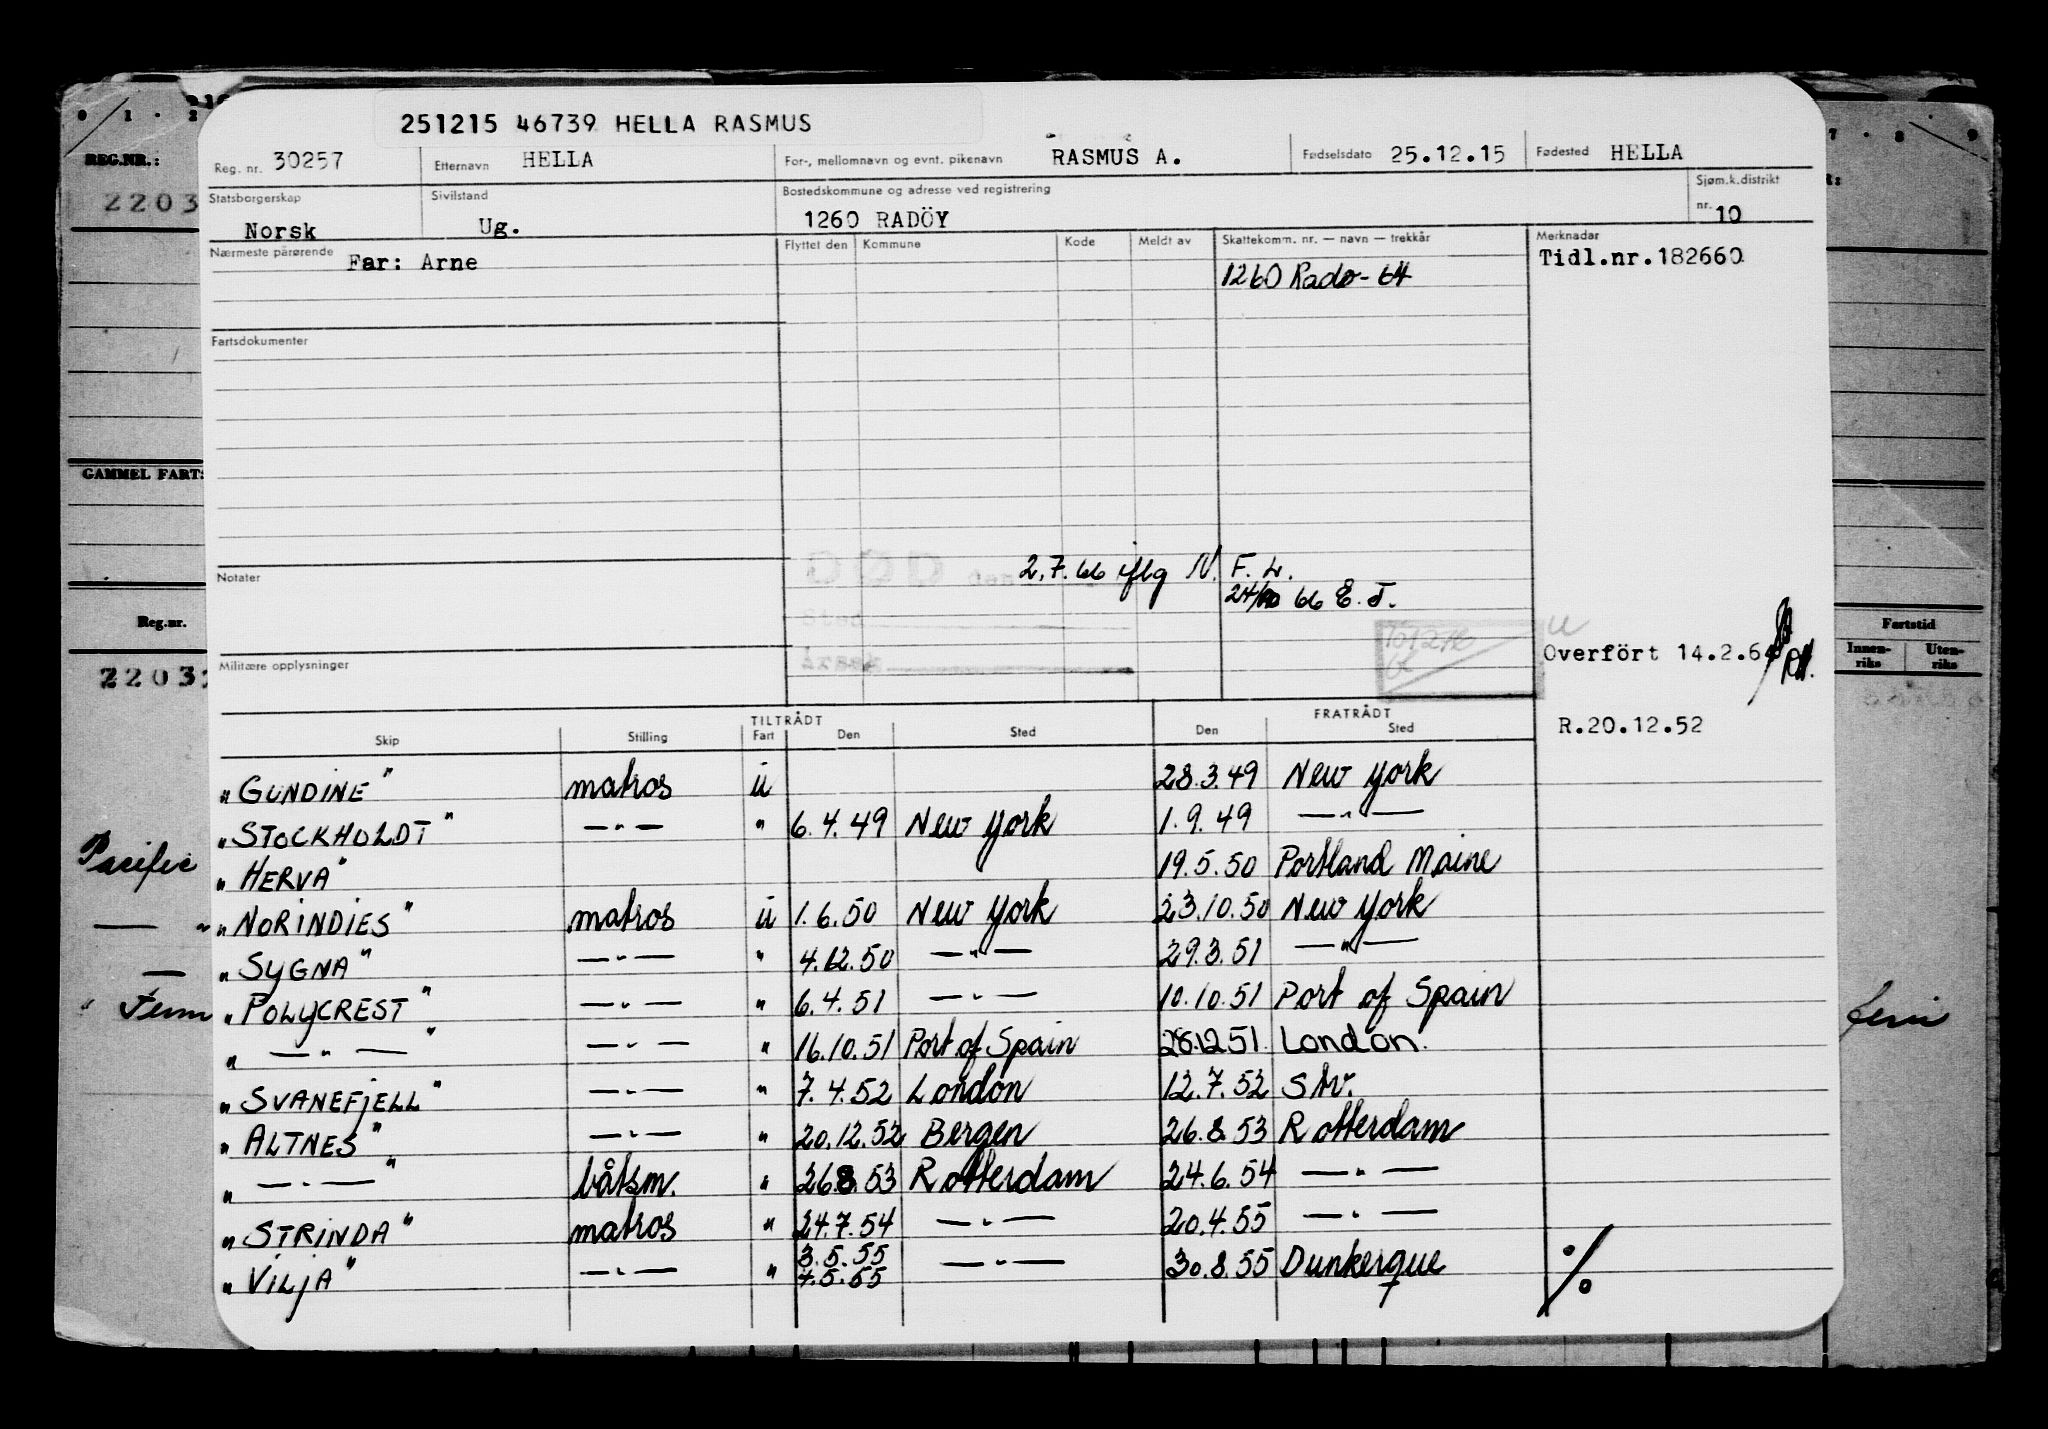 251215 46739 HELLA RASMUS
Reg. nr. 30257 Etternavn HELLA For-, mellomnavn og evnt. pikenavn RASMUS A. Fødselsdato 25.12.15 Fødested HELLA
Statsborgerskap Norsk Sivilstand Ug. Bostedskommune og adresse ved registrering 1260 RADÖY Sjøm.k.distrikt nr. 10
Nærmeste pårørende Far: Arne Flyttet den Kommune Kode Meldt av Skattekomm. nr. — navn — trekkår Merknadar
Tidl.nr.182660
1260 Radø - 64
Fartsdokumenter
Notater
DØD den 2.7.66 iflg N.F.L.
24/10 66 E.T.
Sted
Årsak
Militære opplysninger
Overført 14.2.64
TILTRÅDT FRATRÅDT
Skip Stilling Fart Den Sted Den Sted
R.20.12.52
"GUNDINE" matros u 28.3.49 New York
"STOCKHOLDT" —"— " 6.4.49 New York 1.9.49 —"—
"HERVA" 19.5.50 Portland Maine
"NORINDIES" matros u 1.6.50 New York 23.10.50 New York
"SYGNA" —"— " 4.12.50 —"— 29.3.51 —"—
"POLYCREST" —"— " 6.4.51 —"— 10.10.51 Port of Spain
" —"— " —"— " 16.10.51 Port of Spain 28.12.51 London.
"SVANEFJELL" —"— " 7.4.52 London 12.7.52 Stv.
"ALTNES" —"— " 20.12.52 Bergen 26.8.53 Rotterdam
" —"— " båtsm. " 26.8.53 Rotterdam 24.6.54 —"—
"STRINDA" matros " 24.7.54 —"— 20.4.55 —"—
3.5.55
"VILJA" —"— " 4.5.55 —"— 30.8.55 Dunkerque
REG.NR.:
2203
GAMMEL FARTS
Reg.nr.
2203
Pacific
Fartstid
Innen-riks Uten-riks